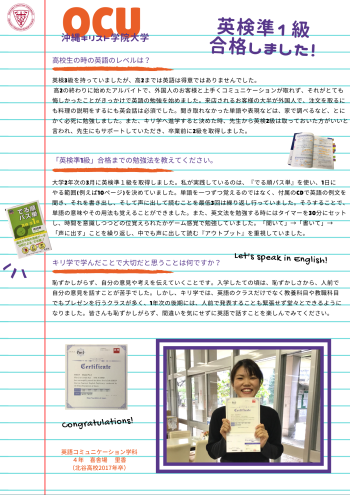 OCU
沖縄キリスト学院大学
英検準1級
合格しました!
高校生の時の英語のレベルは?
英検3級を持っていましたが、高2までは英語は得意ではありませんでした。
高2の終わりに始めたアルバイトで、外国人のお客様と上手くコミュニケーションが取れず、それがとても
悔しかったことがきっかけで英語の勉強を始めました。来店されるお客様の大半が外国人で、注文を取るに
も料理の説明をするにも英会話は必須でした。聞き取れなかった単語や表現などは、家で調べるなど、とに
かく必死に勉強しました。また、キリ学へ進学すると決めた時、先生から英検2級は取っておいた方がいいと
言われ、先生にもサポートしていただき、卒業前に2級を取得しました。
「英検準1級」合格までの勉強法を教えてください。
大学2年次の3月に英検準1級を取得しました。私が実践しているのは、『でる順パス単』を使い、1日に
やる範囲(例えば10ページ)を決めていました。単語を一つずつ覚えるのではなく、付属のCDで英語の例文を
聞き、それを書き出し、そして声に出して読むことを最低3回は繰り返し行っていました。そうすることで、
単語の意味やその用法も覚えることができました。また、英文法を勉強する時にはタイマーを30分にセット
し、時間を意識しつつどの位覚えられたかゲーム感覚で勉強していました。「聞いて」→「書いて」→
「声に出す」ことを繰り返し、中でも声に出して読む『アウトプット』を重視していました。
でる順
パス単
Let's speak in English!
キリ学で学んだことで大切だと思うことは何ですか?
恥ずかしがらず、自分の意見や考えを伝えていくことです。入学したての頃は、恥ずかしさから、人前で
自分の意見を話すことが苦手でした。しかし、キリ学では、英語のクラスだけでなく教養科目や教職科目
でもプレゼンを行うクラスが多く、1年次の後期には、人前で発表することも緊張せず堂々とできるように
なりました。皆さんも恥ずかしがらず、間違いを気にせずに英語で話すことを楽しんでみてください。
Certificate
Congratulations!
英語コミュニケーション学科
4年 喜舎場 里香
(北谷高校2017年卒)